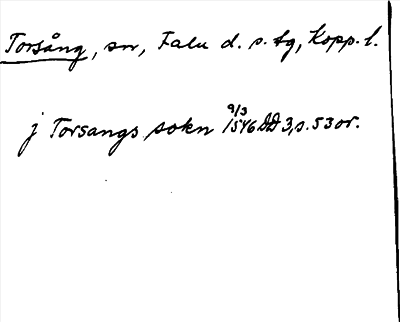 Torsång, sn, Falu d. s. tg, Kopp. l.
j Torsangs sokn 9/3 1546 DD 3, s. 53 or.